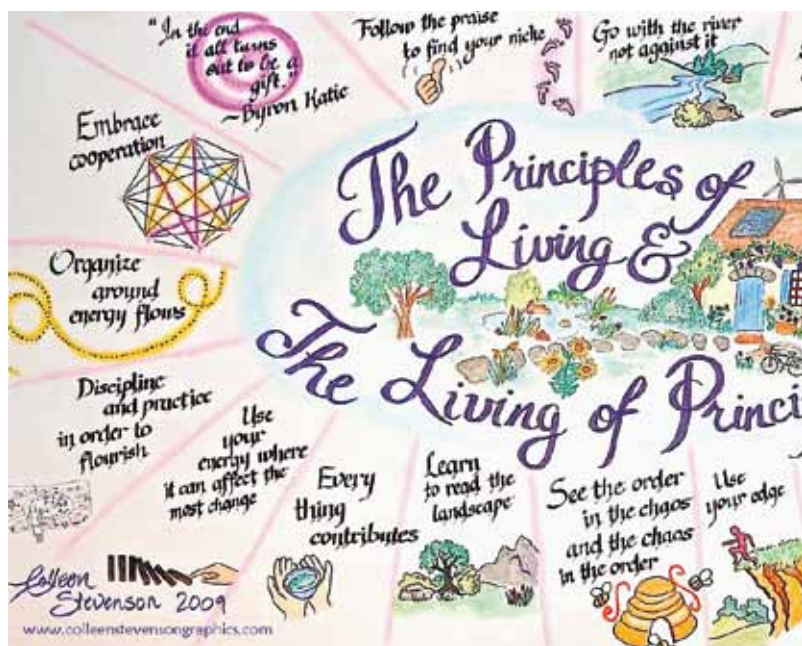 The Principles of
Living &
The Living of Princi
"In the end
it all turns
out to be a
gift."
~Byron Katie
Follow the praise
to find your niche
Go with the river
not against it
Embrace
cooperation
Organize
around
energy flows
Discipline
and practice
in order to
flourish
Use
your
energy where
it can affect the
most change
Every
thing
contributes
Learn
to read the
landscape
See the order
in the chaos
and the chaos
in the order
Use
your edge
Colleen
Stevenson 2009
www.colleenstevensongraphics.com